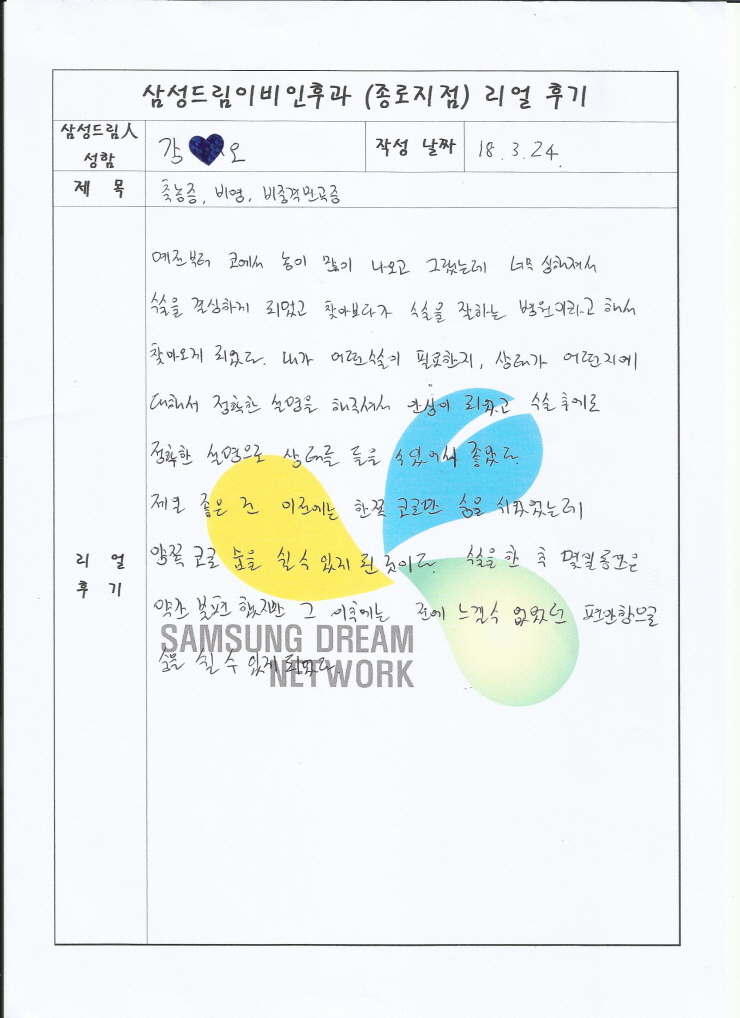 삼성드림이비인후과 (종로지점) 리얼 후기
삼성드림人 성함
강 오
작성 날짜
18. 3. 24.
제 목
축농증, 비염, 비중격만곡증
리 얼 후 기
예전부터 코에서 농이 많이 나오고 그랬는데 너무 심해져서
수술을 결심하게 되었고 찾아보다가 수술을 잘하는 병원이라고 해서
찾아오게 되었다. 내가 어떤수술이 필요한지, 상태가 어떤지에
대해서 정확한 설명을 해주셔서 안심이 되었고 수술후에도
정확한 설명으로 상태를 들을 수있어서 좋았다.
제일 좋은 건 이전에는 한쪽 코로만 숨을 쉬었었는데
양쪽 코로 숨을 쉴 수 있게 된 것이다. 수술을 한 후 몇일동안은
약간 불편 했지만 그 이후에는 전에 느낄수 없었던 편안함으로
숨을 쉴 수 있게 되었다.
SAMSUNG DREAM
NETWORK